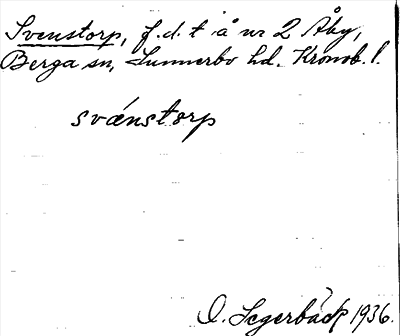 Svenstorp, f.d. t. å nr 2 Åby,
Berga sn, Sunnerbo hd. Kronob. l.
svänstorp
O. Segerbäck 1936.